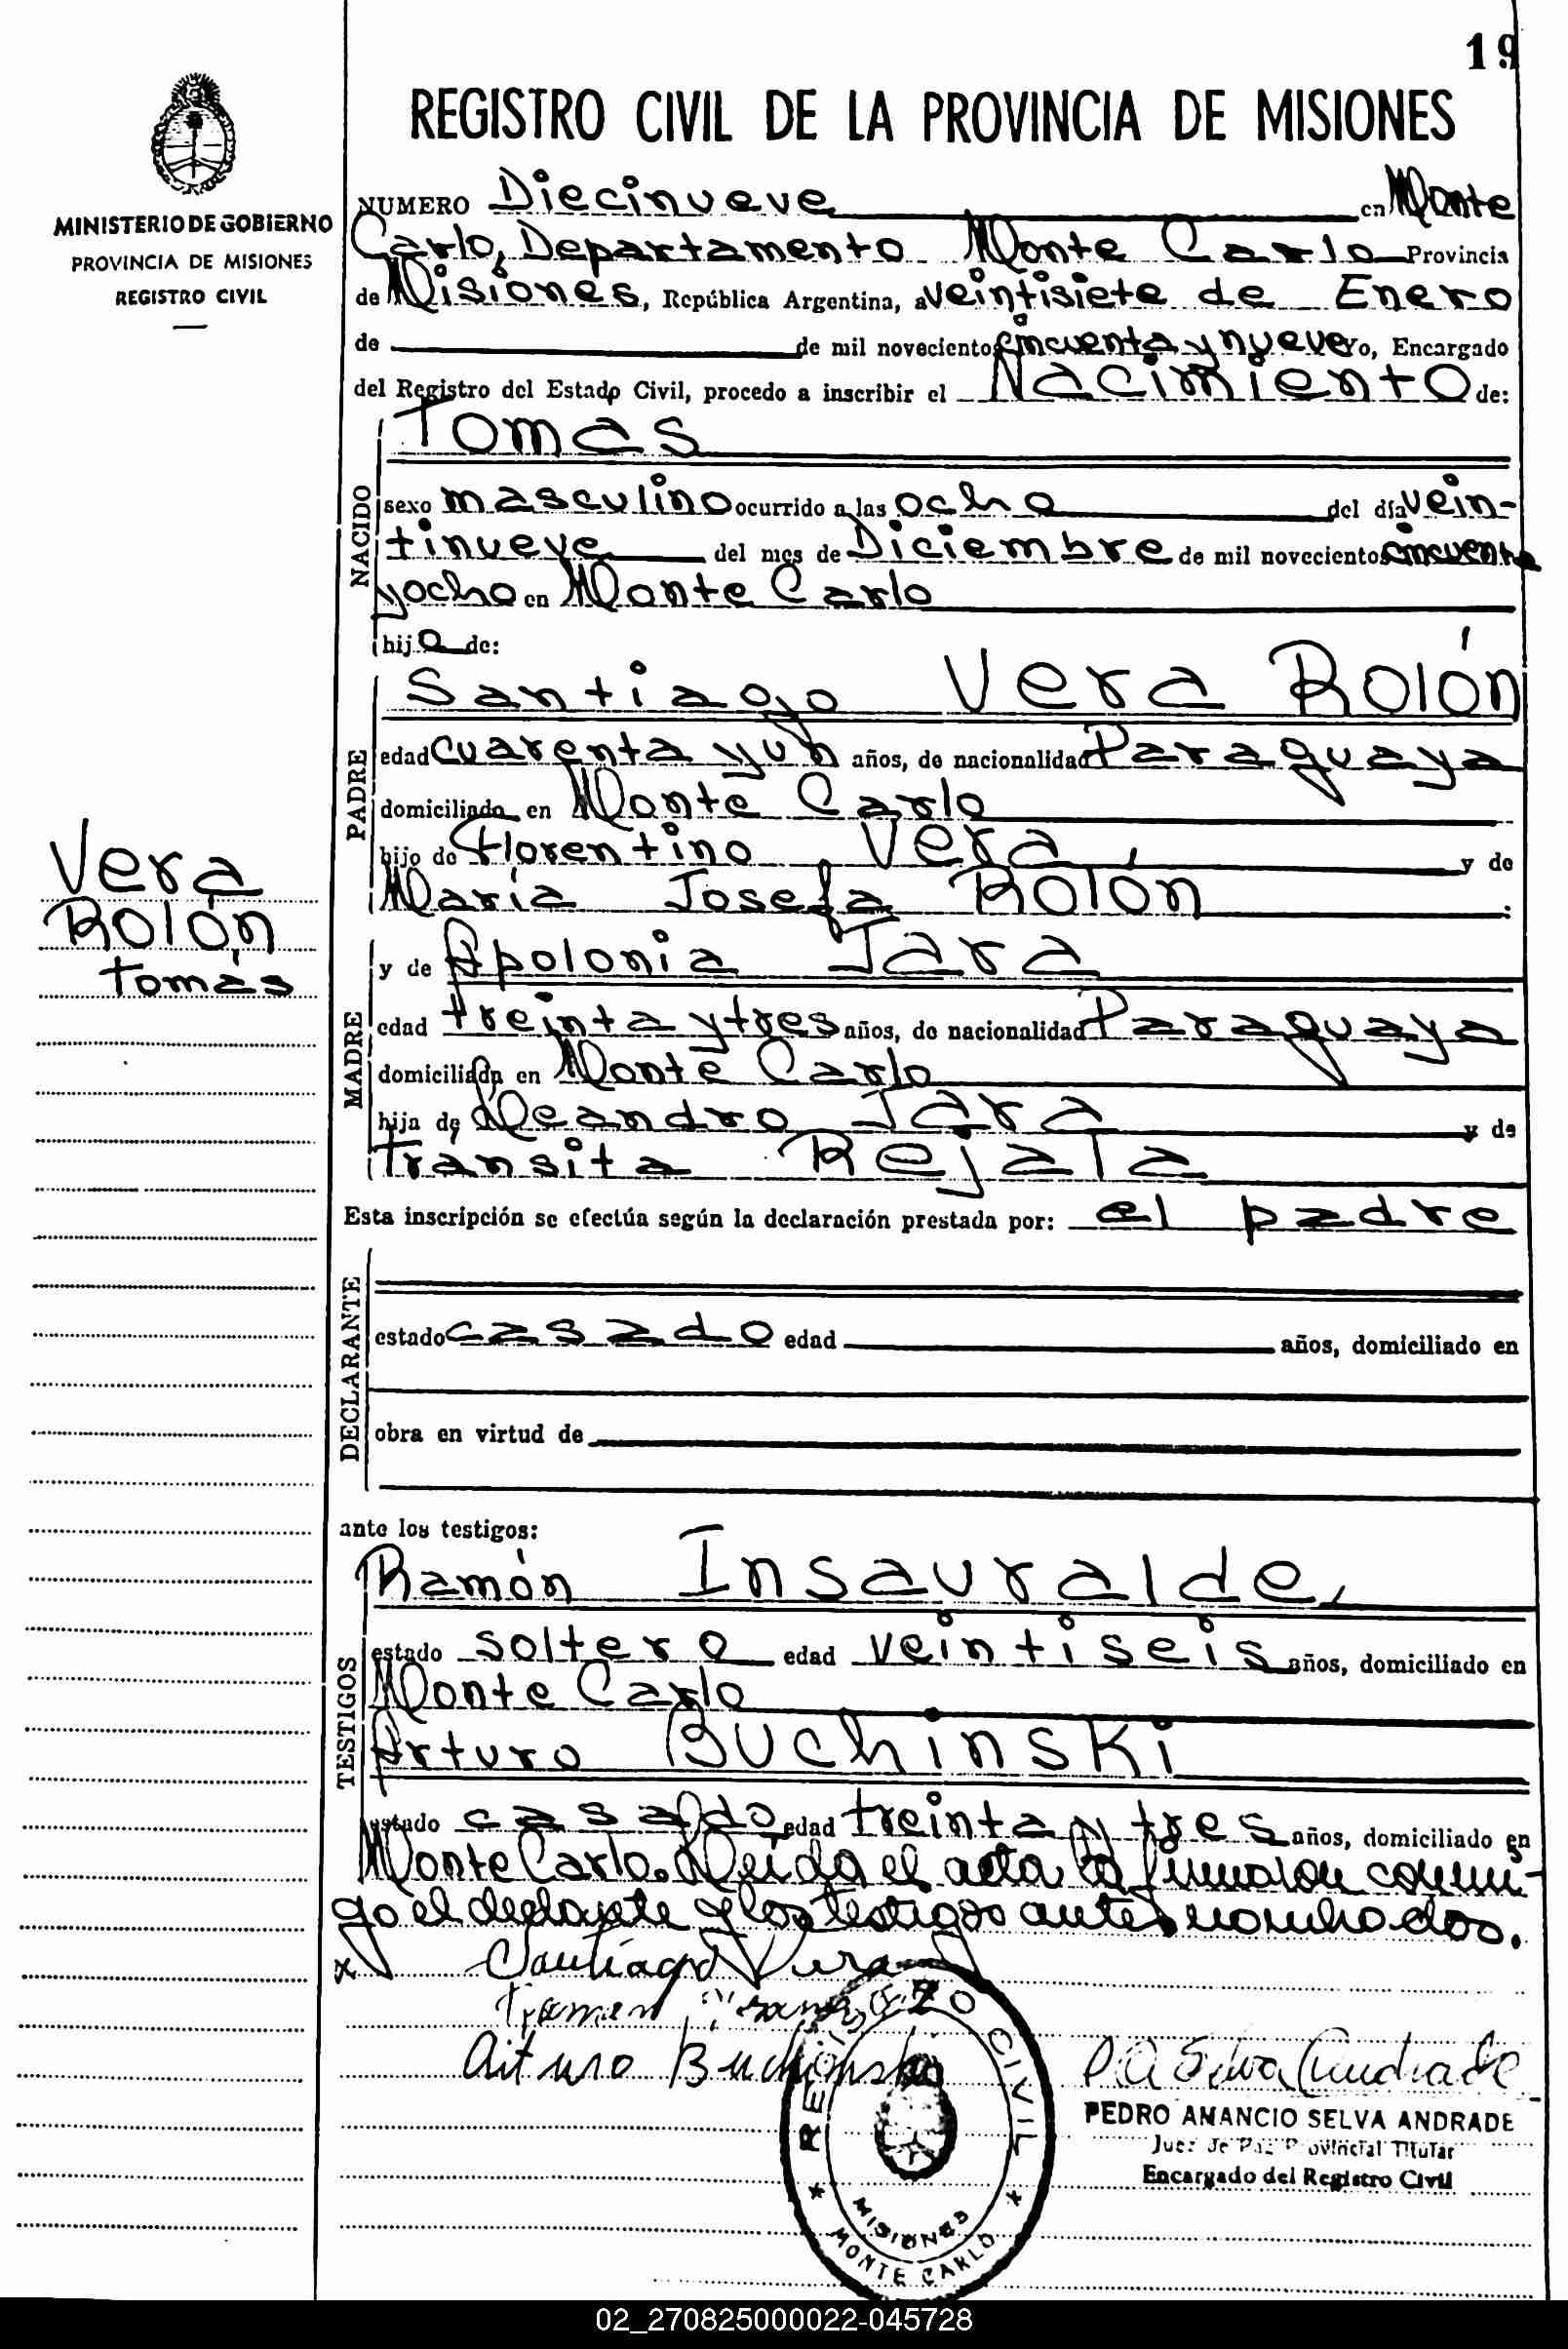 19
REGISTRO CIVIL DE LA PROVINCIA DE MISIONES
MINISTERIO DE GOBIERNO
PROVINCIA DE MISIONES
REGISTRO CIVIL
NUMERO Diecinueve en Monte
Carlo, Departamento Monte Carlo Provincia
de Misiones, República Argentina, a veintisiete de Enero
de de mil novecientos cincuenta y nueve Yo, Encargado
del Registro del Estado Civil, procedo a inscribir el Nacimiento de:
NACIDO
Tomas
sexo masculino ocurrido a las ocho del día vein-
tinueve del mes de Diciembre de mil novecientos cincuenta
y ocho en Monte Carlo
hijo de:
PADRE
Santiago Vera Rolón
edad cuarenta y un años, de nacionalidad Paraguaya
domiciliado en Monte Carlo
hijo de Florentino Vera, y de
María Josefa Rolón
Vera
Rolón
Tomás
MADRE
y de Apolonia Jara
edad treinta y tres años, de nacionalidad Paraguaya
domiciliada en Monte Carlo
hija de Leandro Jara y de
Transita Rejala
Esta inscripción se efectúa según la declaración prestada por: el padre
DECLARANTE
estado casado edad años, domiciliado en
obra en virtud de
ante los testigos:
TESTIGOS
Ramón Insauralde,
estado soltero edad veintiseis años, domiciliado en
Monte Carlo
Arturo Buchinski
estado casado edad treinta y tres años, domiciliado en
Monte Carlo. Leida el acta la firmaron conmi-
go el declarante y los testigos antes nombrados.
x Santiago Vera
Ramon
Arturo Buchinski
P A Selva Andrade
PEDRO AMANCIO SELVA ANDRADE
Juez de Paz Provincial Titular
Encargado del Registro Civil
REGISTRO CIVIL
MISIONES
MONTE CARLO
02_270825000022-045728